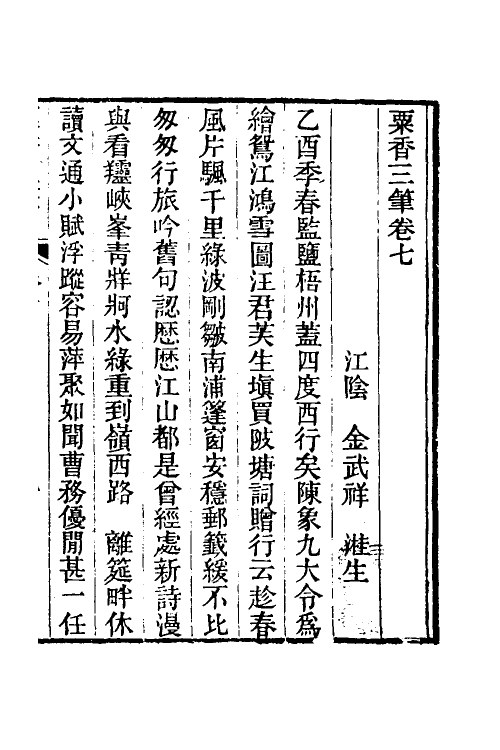 粟香三筆卷七
江陰　金武祥　溎生
乙酉季春監鹽梧州蓋四度西行矣陳象九大令爲
繪鴛江鴻雪圖汪君芙生塡買陂塘詞贈行云趁春
風片颿千里綠波剛皺南浦篷窗安穩郵籤緩不比
匆匆行旅吟舊句認歴歴江山都是曾經處新詩漫
與看羚峽峯靑牂牁水綠重到嶺西路　離筵畔休
讀文通小賦浮蹤容易萍聚如聞曹務優閒甚一任